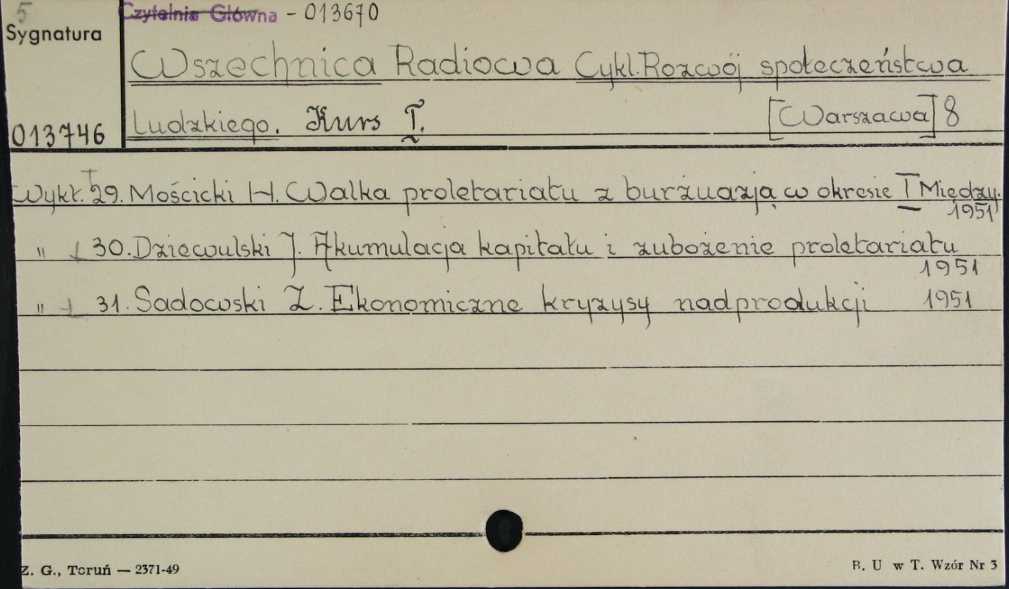 5 Czytelnia Główna - 013670
Sygnatura
Wszechnica Radiowa Cykl. Rozwój społeczeństwa
013746 Ludzkiego. Kurs I. [Warszawa] 8
Wykł. 29. Mościcki H. Walka proletariatu z burżuazją w okresie I Między.
1951
" 30. Dziewulski J. Akumulacja kapitału i zubożenie proletariatu
1951
" 31. Sadowski Z. Ekonomiczne kryzysy nadprodukcji 1951
Z. G., Toruń — 2371-49 B. U w T. Wzór Nr 3